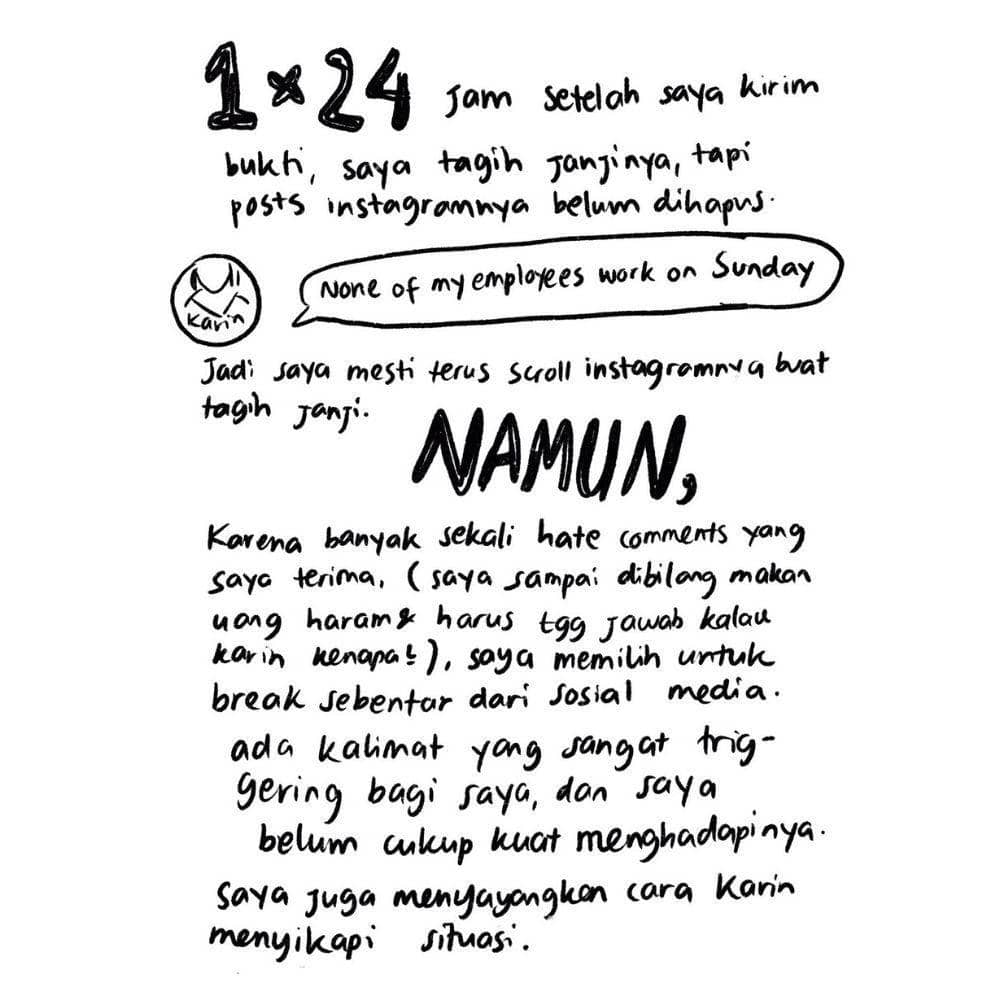 1×24 jam setelah saya kirim
bukti, saya tagih janjinya, tapi
posts instagramnya belum dihapus.
None of my employees work on Sunday
Karin
Jadi saya mesti terus scroll instagramnya buat
tagih janji.
NAMUN,
Karena banyak sekali hate comments yang
saya terima, (saya sampai dibilang makan
uang haram & harus tgg jawab kalau
karin kenapa²), saya memilih untuk
break sebentar dari sosial media.
ada kalimat yang sangat trig-
gering bagi saya, dan saya
belum cukup kuat menghadapinya.
Saya juga menyayangkan cara Karin
menyikapi situasi.